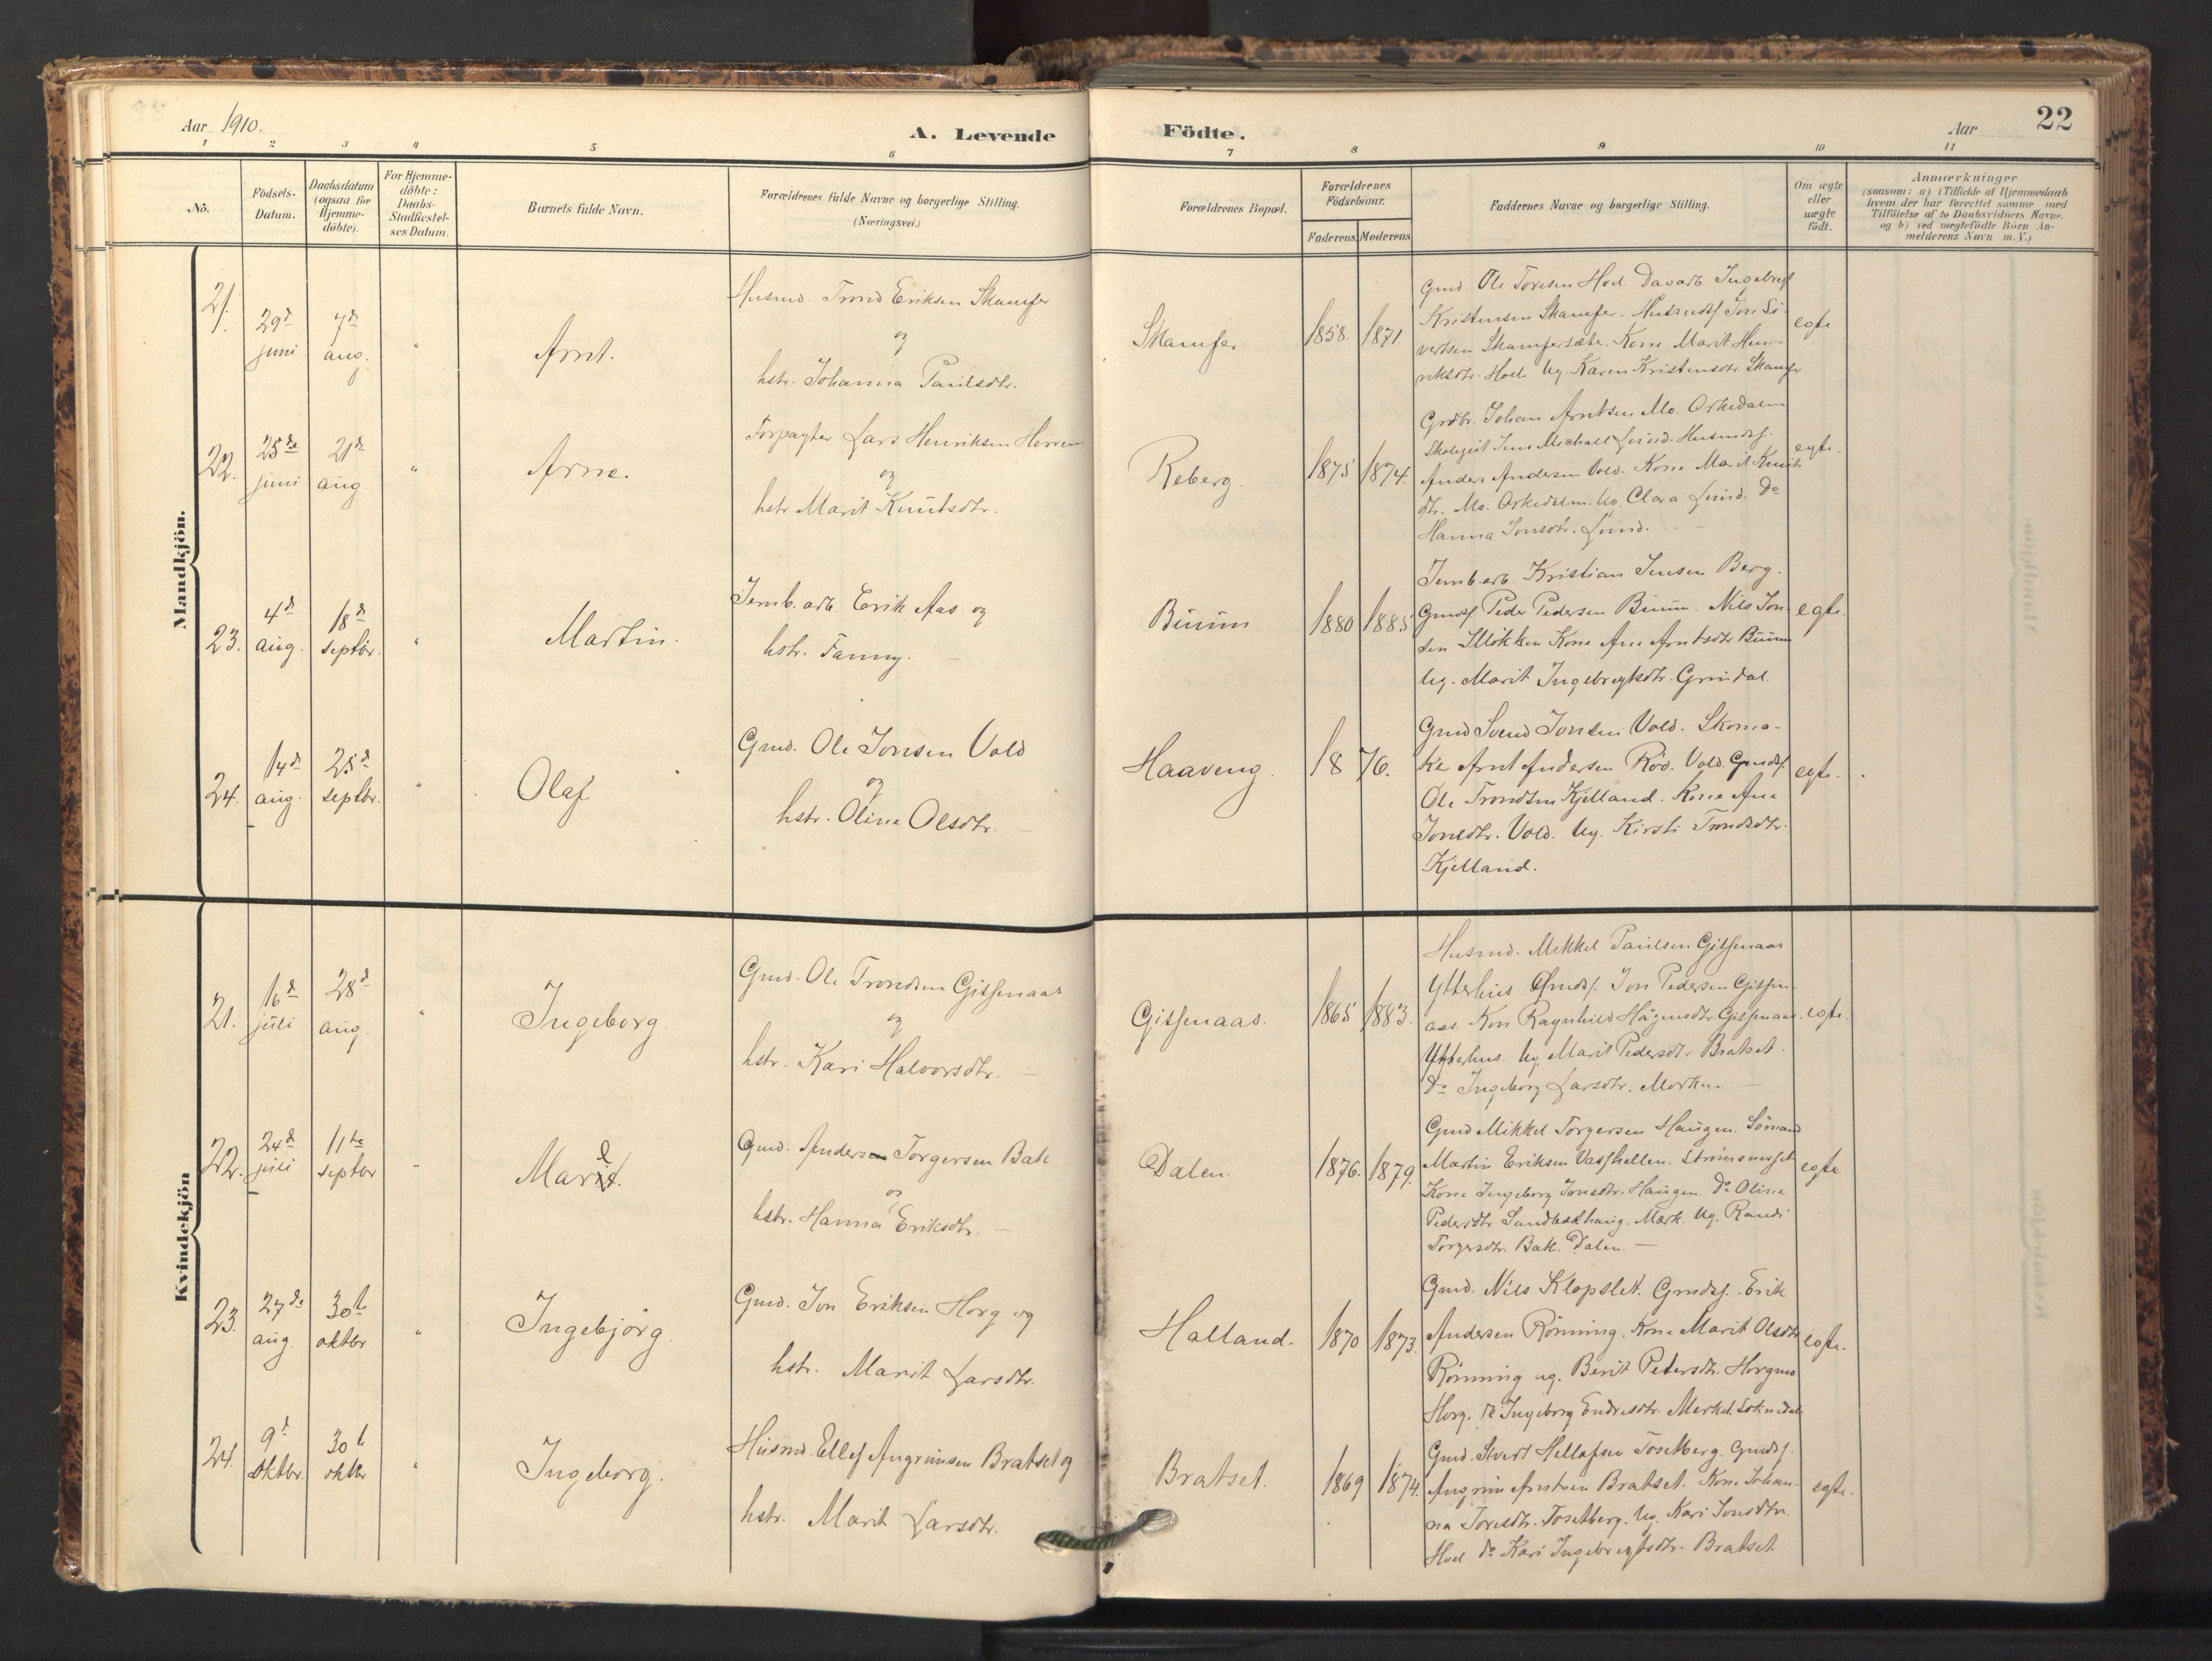 Aar 1910.
A. Levende
Födte.
Aar
22
1
2
3
4
5
6
7
8
9
10
11
No.
Födsels-
Datum.
Daabsdatum
(ogsaa for
Hjemme-
döbte).
For Hjemme-
döbte:
Daabs-
Stadfæstel-
ses Datum.
Barnets fulde Navn.
Forældrenes fulde Navne og borgerlige Stilling.
(Næringsvei.)
Forældrenes Bopæl.
Forældrenes
Födselsaar.
Faderens.
Moderens
Faddernes Navne og borgerlige Stilling.
Om ægte
eller
uægte
födt.
Anmærkninger
(saasom: a) i Tilfælde af Hjemmedaab
hvem der har forrettet samme med
Tilföielse af to Daabsvidners Navne.
og b) ved uægtefödte Börn An-
melderens Navn m. V.)
Mandkjön.
21.
29d
juni
7d
aug.
"
Arnt.
Husmd. Trond Eriksen Skamfer
og
hstr. Johanna Paulsdtr.
Skamfer
1858.
1871.
Gmd. Ole Toresen Hoel. Davarb. Ingebrigt
Kristensen Skamfer. Husmds. Jon Si-
vertsen Skamfersæte. Kone Marit Hen-
riksdtr. Hoel Ug. Karen Kristensdtr Skamfer
egte.
22.
25de
juni
21d
aug.
"
Arne.
Forpagter Lars Henriksen Herrem
og
hstr Marit Knutsdtr.
Reberg.
1875
1874.
Grdbr. Johan Arntsen Mo. Orkedalen
Jens Michael Lund. Husmds.
Anders Andersen Vold. Kone Marit Knuts
dtr. Mo. Orkedalen. Ug. Clara Lund. Do
Hanna Jonsdtr. Lund.
egte.
23.
4d
aug.
18d
septbr.
"
Martin.
Jernb. arb. Erik Aas og
hstr. Fanny.
Buum
1880
1885
Jernb. arb. Kristian Jensen Berg.
Gmds Peder Pedersen Buum. Nils Jon-
sen Kone Ane Arntsdtr Buum
Ug. Marit Ingebrigtsdtr. Grindal.
egte.
24.
14d
aug.
25d
septbr.
"
Olaf
Gmd. Ole Jonsen Vold
og
hstr. Oline Olsdtr.
Haaveng.
1876.
Gmd Svend Jonsen Vold. Skoma-
ker Arnt Andersen Rød. Vold. Gmds.
Ole Trondsen Kjelland. Kone Ane
Jonsdtr. Vold. Ug. Kirsti Trondsdtr.
Kjelland.
egte.
Kvindekjön
21.
16d
juli
28d
aug.
"
Ingeborg
Gmd. Ole Trondsen Gisnaas
og
hstr. Kari Halvorsdtr.
Gisnaas.
1865
1883.
Husmd. Mikkel Paulsen Gisnaas
Ytterhus. Gmds. Jon Pedersen Gisn-
aas. Kon Ragnhild Gisnaas.
Ytterhus. Ug. Marit Pedersdtr Bratset.
Do Ingeborg Larsdtr. Morken.
egte.
22.
24d
juli
11te
septbr
"
Marit.
Gmd. Anders Torgersen Bak
og
hstr. Hanna Eriksdtr.
Dalen.
1876.
1879.
Gmd Mikkel Torgersen Haugen. Sömand
Martin Eriksen
Kone Ingeborg Jonsdtr. Haugen. Do Oline
Pedersdtr Sandbækhaug. Mærk. Ug. Randi
Torgersdtr. Bak. Dalen.
egte
23.
27de
aug.
30te
oktbr
"
Ingebjørg.
Gmd. Jon Eriksen Horg og
hstr. Marit Larsdtr.
Halland.
1870
1873.
Gmd. Nils Klopslet. Gmds. Erik
Andersen Rönning. Kone Marit Olsdtr
Rönning ug. Berit Petersdtr. Horgmo
Horg. do Ingeborg Endresdtr.
egte.
24.
9d
oktbr.
30te
oktbr
"
Ingeborg.
Husmd. Ellef Angrimsen Bratset og
hstr. Marit Larsdtr.
Bratset.
1869
1874.
Gmd. Sivert Tosetberg. Gmds.
Angrim Arntsen Bratset. Kone Johan-
na Toresdtr. Tosetberg. Ug. Kari Jonsdtr
Hoel do Kari Ingebrigtsdtr. Bratset
egte.